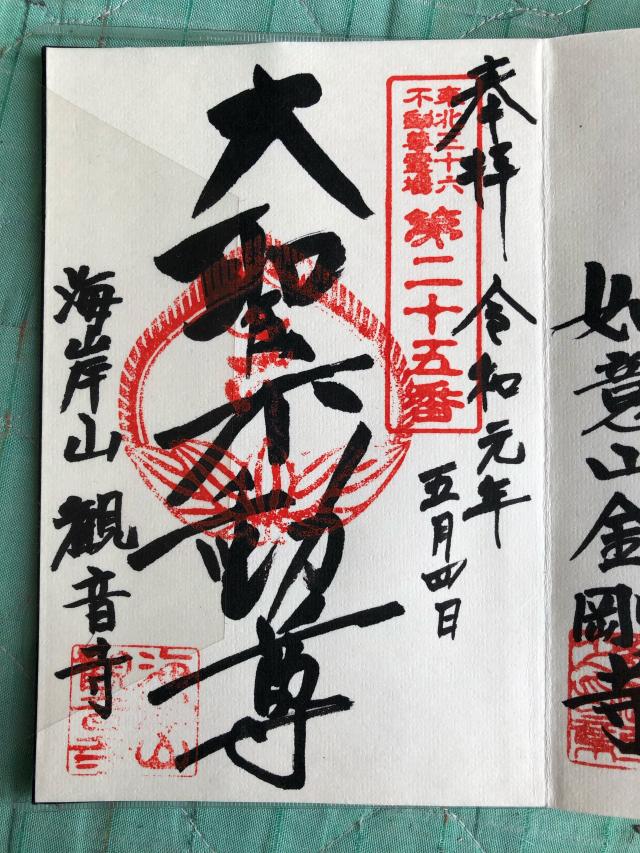 如意山金剛寺
奉拝 令和元年
五月四日
東北三十六
不動尊霊場
第二十五番
大聖不動尊
海岸山 観音寺